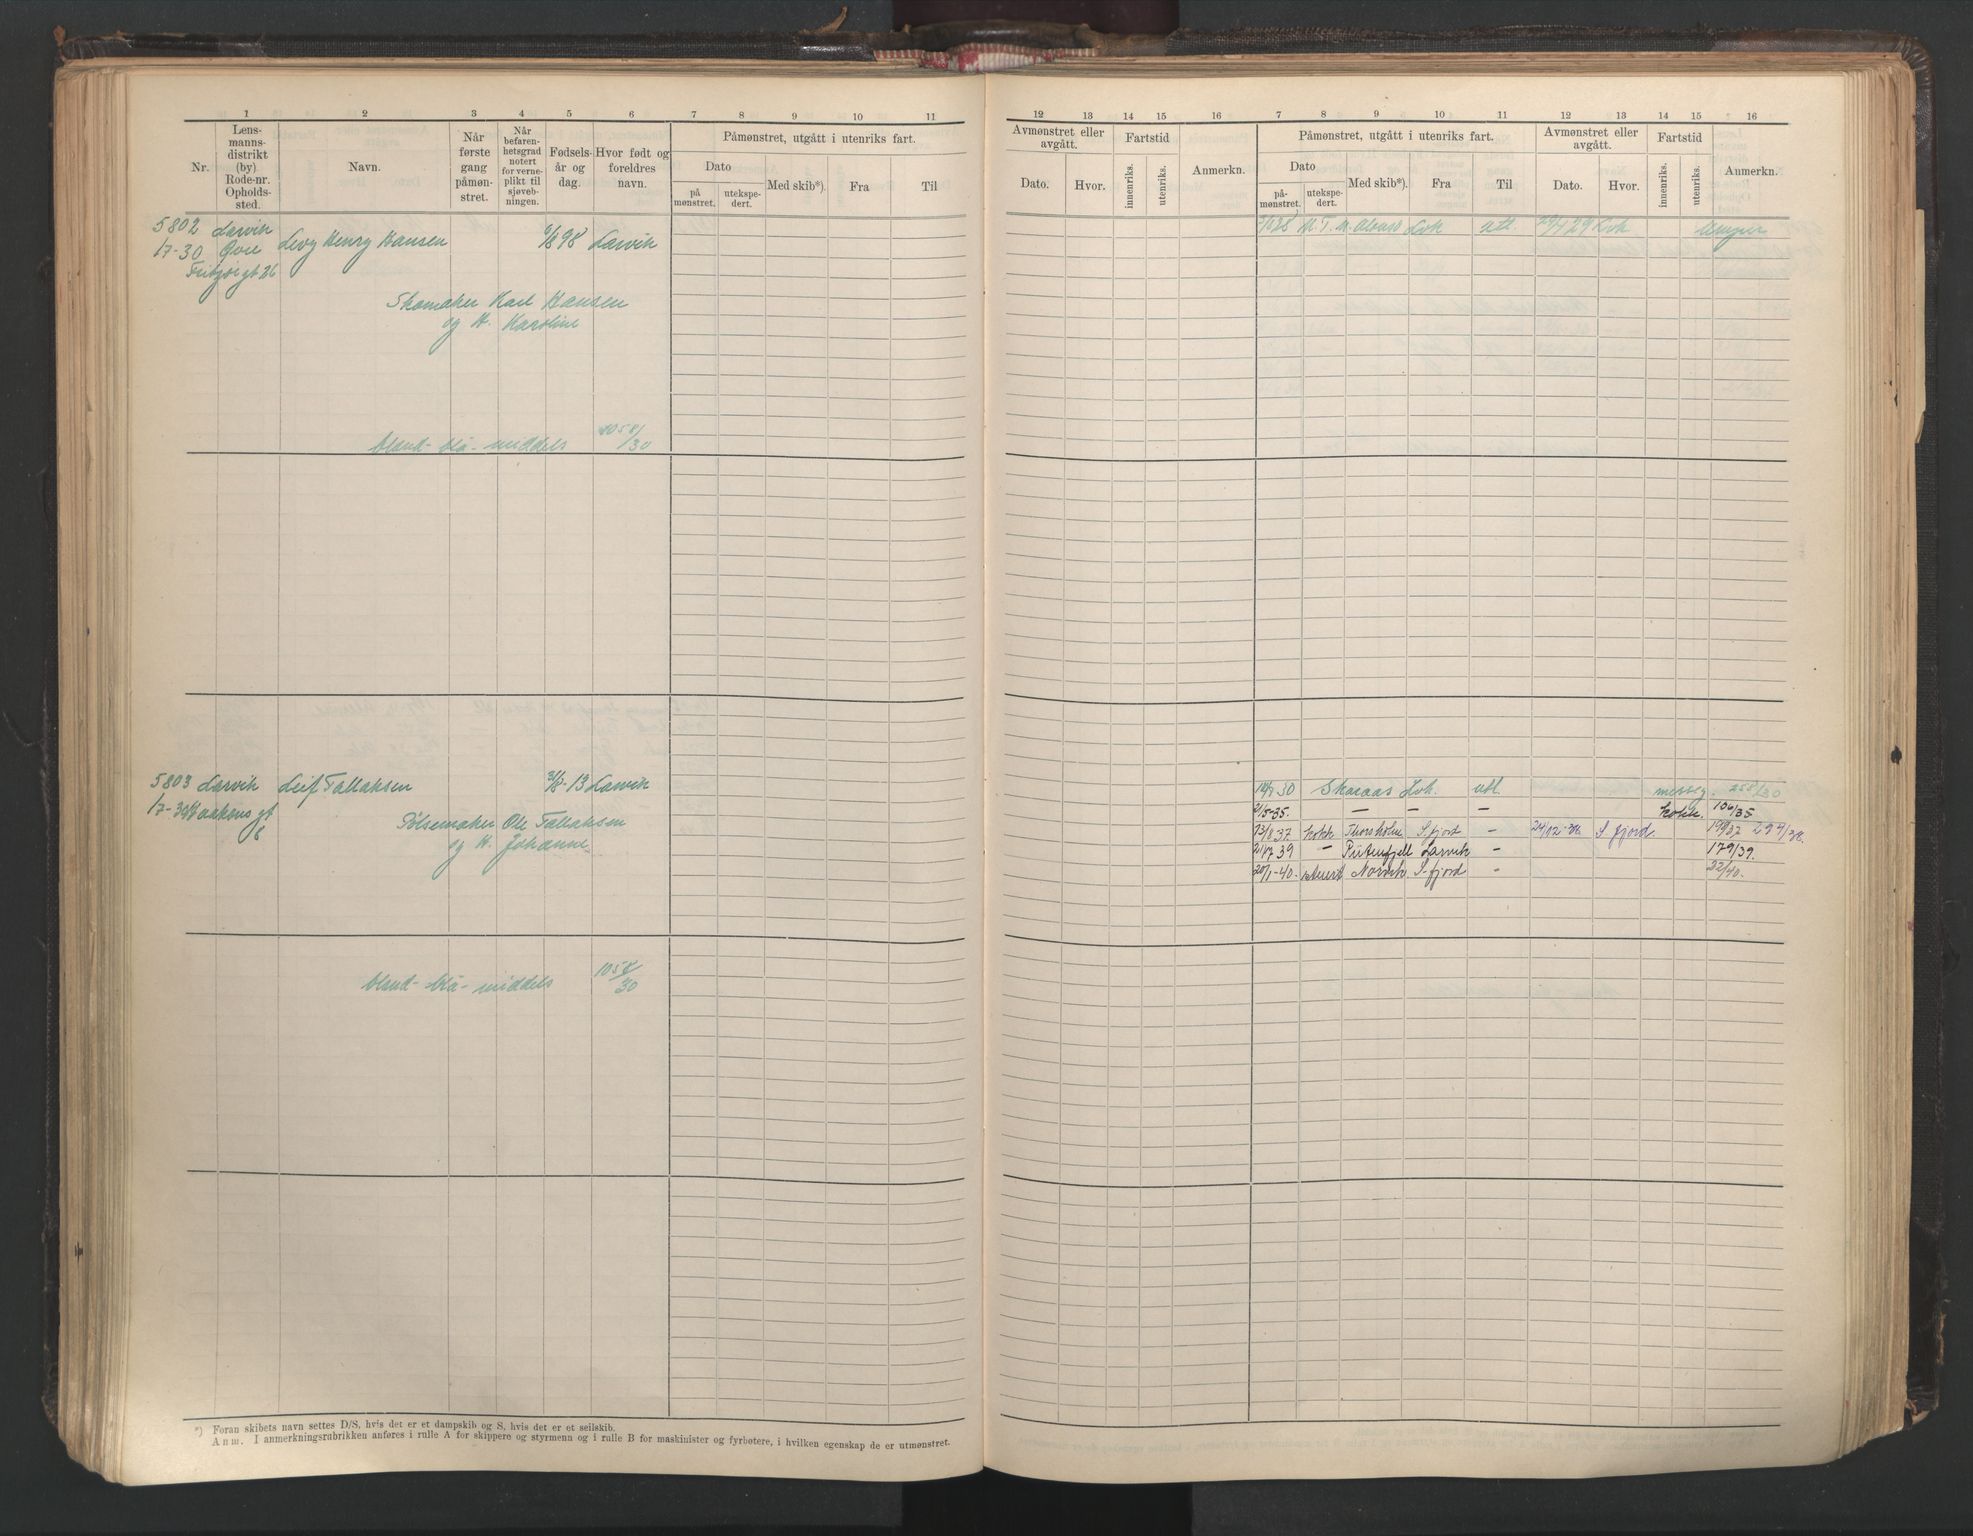 1 2 3 4 5 6 7 8 9 10 11
Nr.
Lens-
manns-
distrikt
(by)
Rode-nr.
Opholds-
sted.
Navn.
Når
første
gang
påmøn-
stret.
Når
befaren-
hetsgrad
notert
for verne-
plikt til
sjøveb-
ningen.
Fødsels-
år og
dag.
Hvor født og
foreldres
navn.
Påmønstret, utgått i utenriks fart.
Dato
på
mønstret.
utekspe-
dert.
Med skib*).
Fra
Til
5802 Larvik Levy Henry Hansen 6/8 98 Larvik
1/7-30 Øvre
Fritzøegt 26
Skomaker Karl Hansen
og H. Karoline
blond- blå- middels 1058/30
5803 Larvik Leif Tallaksen 31/8-13 Larvik
1/7-30 Haakonsgt
8
Pølsemaker Ole Tallaksen
og H. Johanne
blond- blå- middels 1058/30
*) Foran skibets navn settes D/S, hvis det er et dampskib og S, hvis det er et seilskib.
Anm. I anmerkningsrabrikken anføres i rulle A for skippere og styrmenn og i rulle B for maskinister og fyrbøtere, i hvilken egenskap de er utmønstret.
12 13 14 15 16 7 8 9 10 11 12 13 14 15 16
Avmønstret eller
avgått.
Dato.
Hvor.
Fartstid
innenriks.
utenriks.
Anmerkn.
Påmønstret, utgått i utenriks fart.
Dato
på-
mønstret.
utekspe-
dert.
Med skib*).
Fra
Til
Avmønstret eller
avgått.
Dato.
Hvor.
Fartstid
innenriks.
utenriks.
Anmerkn.
M. T. M. Lvk utl. 29/4 29 Lvk
14/7 30 Skaraas Lvk. utl. messeg. 258/30
21/5-35. — — — kokk 106/35
13/8 37 kokk Thorsholm S.fjord — 24/12-38 S. fjord. 199/37 294/38.
21/7 39 — Rutenfjell Larvik — 179/39.
20/1-40. stuert Norvik S-fjord - 22/40.